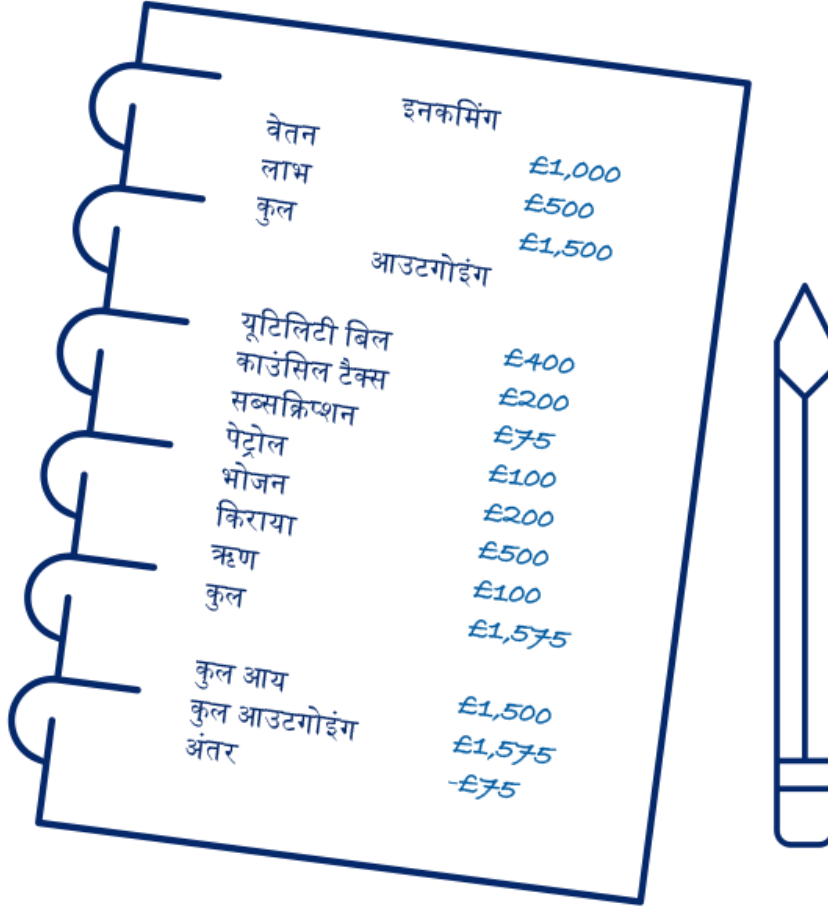 इनकमिंग
वेतन £1,000
लाभ £500
कुल £1,500
आउटगोइंग
यूटिलिटी बिल £400
काउंसिल टैक्स £200
सब्सक्रिप्शन £75
पेट्रोल £100
भोजन £200
किराया £500
ऋण £100
कुल £1,575
कुल आय £1,500
कुल आउटगोइंग £1,575
अंतर -£75